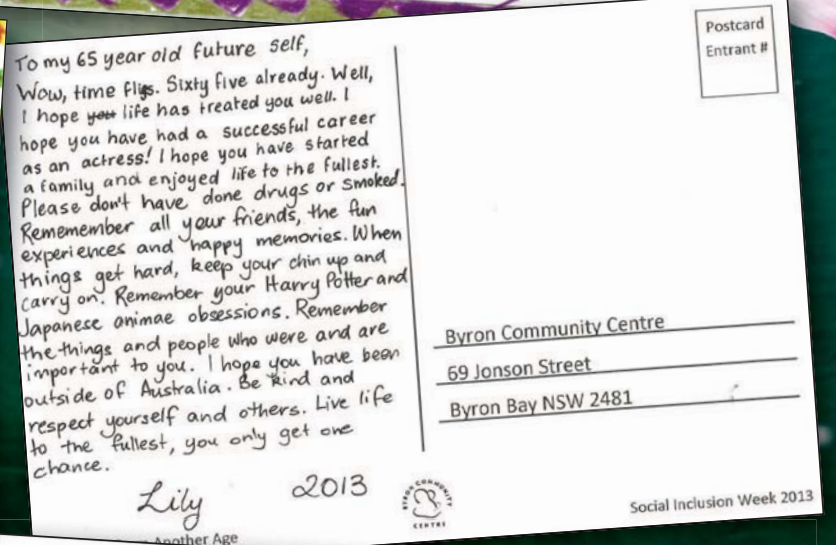 To my 65 year old future self,
Wow, time flys. Sixty five already. Well,
I hope you life has treated you well. I
hope you have had a successful career
as an actress! I hope you have started
a family and enjoyed life to the fullest.
Please don't have done drugs or smoked.
Rememember all your friends, the fun
experiences and happy memories. When
things get hard, keep your chin up and
carry on. Remember your Harry Potter and
Japanese animae obsessions. Remember
the things and people who were and are
important to you. I hope you have been
outside of Australia. Be kind and
respect yourself and others. Live life
to the fullest, you only get one
chance.
Lily 2013
Another Age
Postcard
Entrant #
Byron Community Centre
69 Jonson Street
Byron Bay NSW 2481
BYRON COMMUNITY
CENTRE
Social Inclusion Week 2013